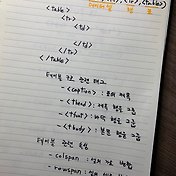 <table>
<tr>
<td>
</td>
</tr>
</table>
테이블 구조 관련 태그
- <caption> : 표의 제목
- <thead> : 제목 행을 그룹
- <tfoot> : 바닥 행을 그룹
- <tbody> : 본문 행을 그룹
테이블 관련 속성
- colspan : 셀의 가로 병합
- rowspan :